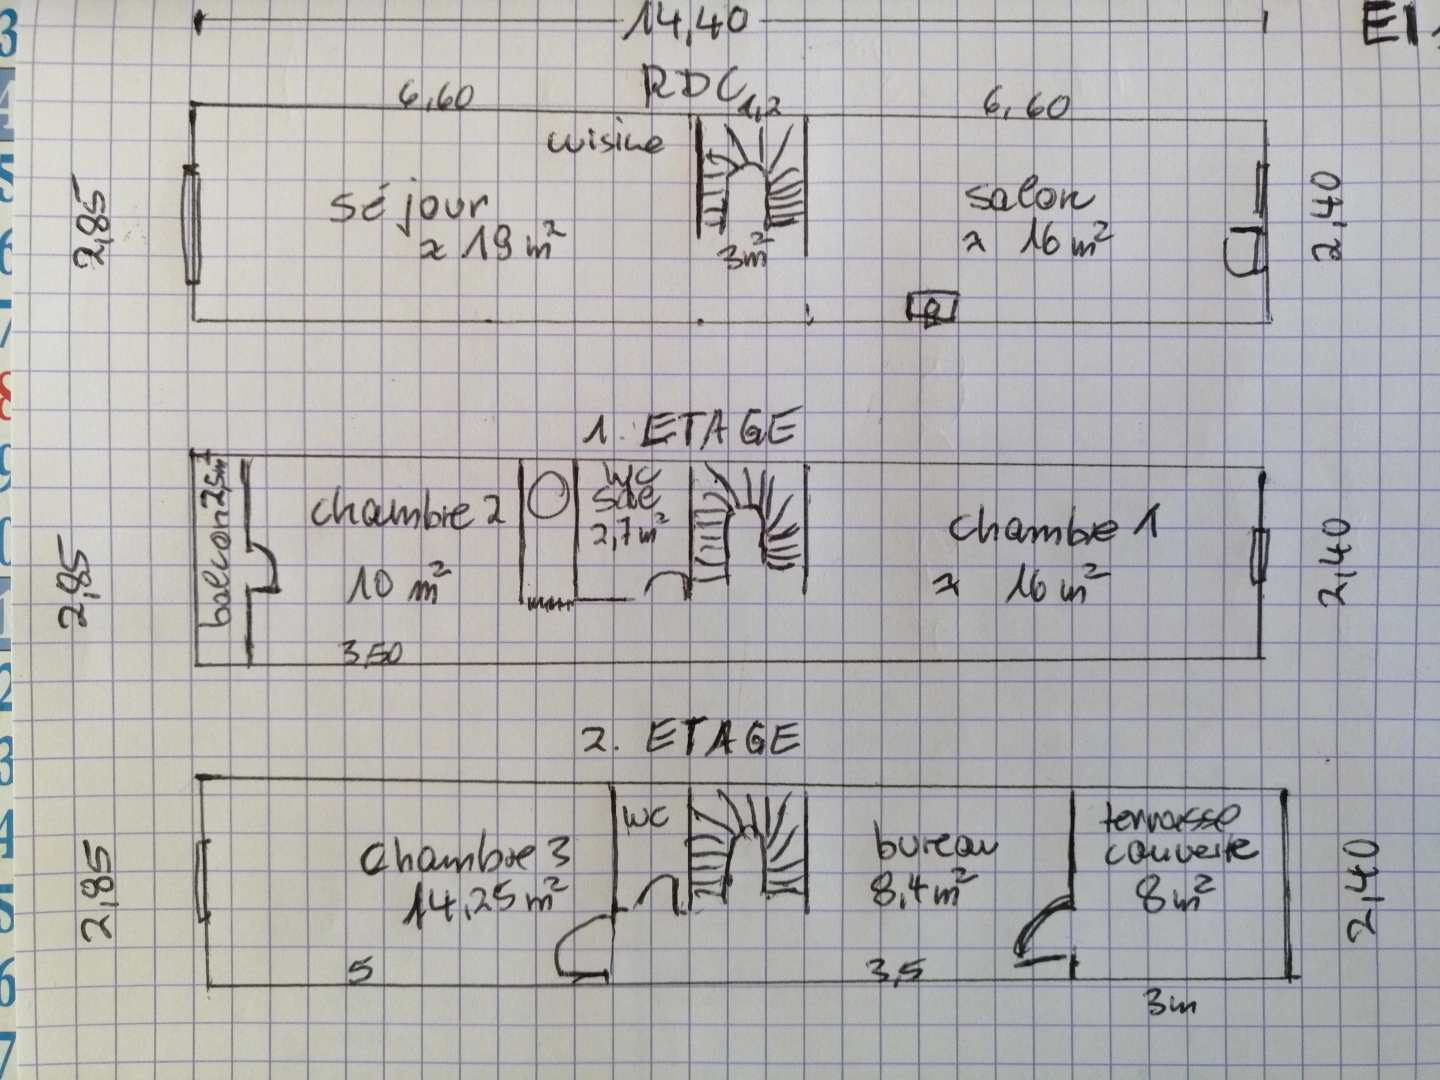 14,40
RDC
6,60
1,2
6,60
cuisine
séjour
≈ 19 m²
3m²
salon
≈ 16 m²
2,85
2,40
1. ETAGE
balcon 2,5m²
chambre 2
10 m²
3,50
WC
SdE
2,7m²
chambre 1
≈ 16 m²
2,85
2,40
2. ETAGE
chambre 3
14,25 m²
5
WC
bureau
8,4m²
3,5
terrasse
couverte
8m²
3m
2,85
2,40